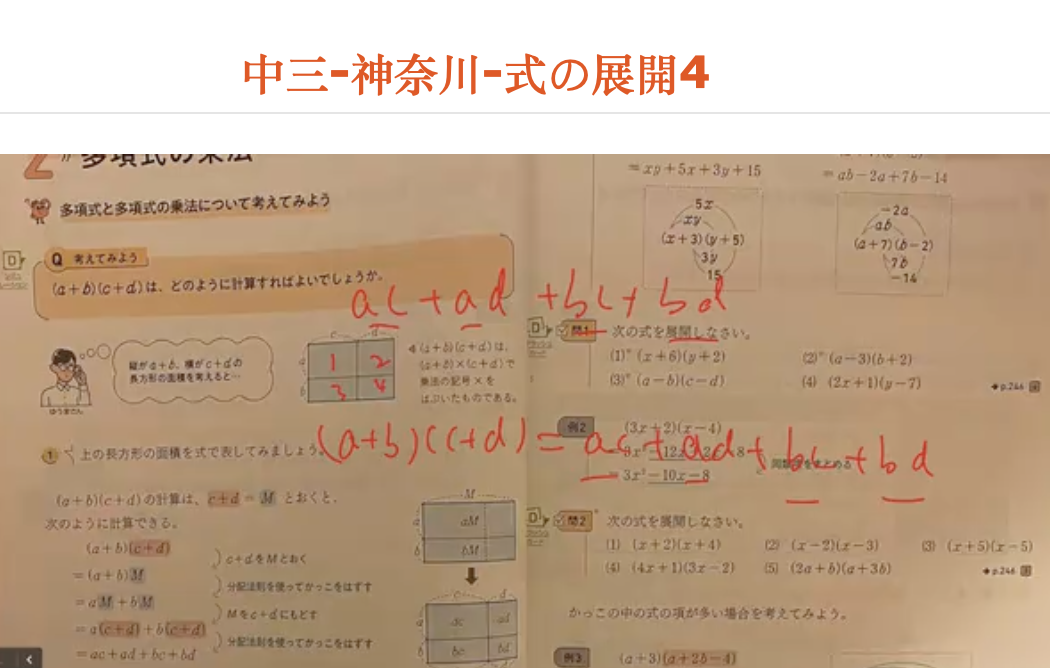 中三-神奈川-式の展開4
2
多項式の乗法
多項式と多項式の乗法について考えてみよう
Q 考えてみよう
(a+b)(c+d)は、どのように計算すればよいでしょうか。
ac+ad+bc+bd
縦がa+b、横がc+dの
長方形の面積を考えると…
ゆうまさん
c d
a
b
1 2
3 4
(a+b)(c+d)は、
(a+b)×(c+d)で
乗法の記号×を
はぶいたものである。
1 上の長方形の面積を式で表してみましょう。
(a+b)(c+d)=ac+ad+bc+bd
(a+b)(c+d)の計算は、c+d=Mとおくと、
次のように計算できる。
(a+b)(c+d)
=(a+b)M
=aM+bM
=a(c+d)+b(c+d)
=ac+ad+bc+bd
c+dをMとおく
分配法則を使ってかっこをはずす
Mをc+dにもどす
分配法則を使ってかっこをはずす
M
a aM
b bM
c d
a ac ad
b bc bd
=xy+5x+3y+15
=ab-2a+7b-14
5x
xy
(x+3)(y+5)
3y
15
-2a
ab
(a+7)(b-2)
7b
-14
D 問1 次の式を展開しなさい。
(1)° (x+6)(y+2)
(2)° (a-3)(b+2)
(3)° (a-b)(c-d)
(4) (2x+1)(y-7)
p.246
例2 (3x+2)(x-4)
=3x²-12x+2x-8
=3x²-10x-8
同類項をまとめる
D 問2 次の式を展開しなさい。
(1) (x+2)(x+4)
(2) (x-2)(x-3)
(3) (x+5)(x-5)
(4) (4x+1)(3x-2)
(5) (2a+b)(a+3b)
p.246
かっこの中の式の項が多い場合を考えてみよう。
例3 (a+3)(a+2b-4)